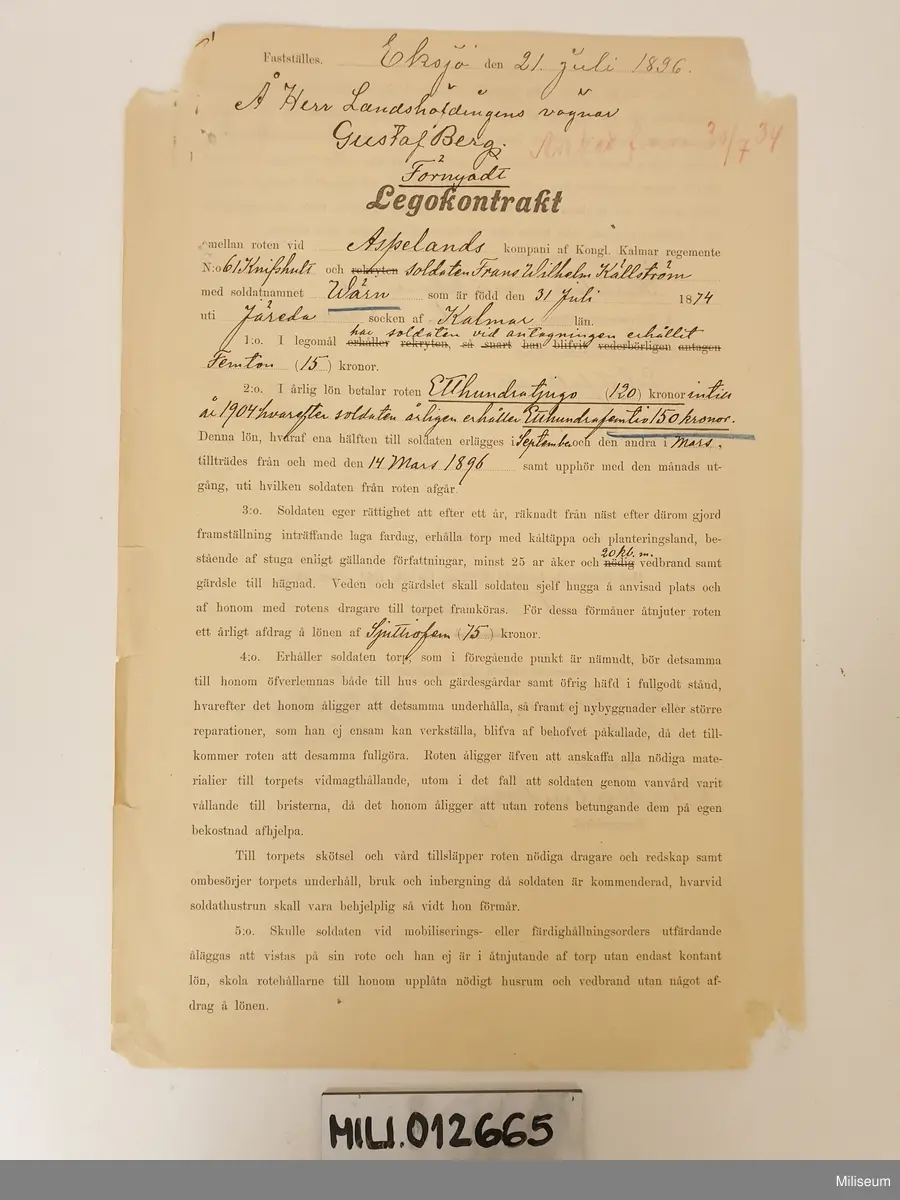 Fastställes. Eksjö den 21. Juli 1896.
Å Herr Landshöfdingens vägnar
Gustaf Berg.
30/7 34
Förnyadt
Legokontrakt
mellan roten vid Aspelands kompani af Kongl. Kalmar regemente
N:o 61 Knifshult och rekryten soldaten Frans Wilhelm Källström
med soldatnamnet Wärn som är född den 31 Juli 1874
uti Järeda socken af Kalmar län.
har soldaten vid antagningen erhållit
1:o. I legomål erhåller rekryten, så snart han blifvit vederbörligen antagen
Femton (15) kronor.
2:o. I årlig lön betalar roten Etthundratjugo (120) kronor intill
år 1904 hvarefter soldaten årligen erhåller Etthundrafemtio 150 kronor.
Denna lön, hvaraf ena hälften till soldaten erlägges i September och den andra i Mars,
tillträdes från och med den 14 Mars 1896 samt upphör med den månads ut-
gång, uti hvilken soldaten från roten afgår.
3:o. Soldaten eger rättighet att efter ett år, räknadt från näst efter därom gjord
framställning inträffande laga fardag, erhålla torp med kåltäppa och planteringsland, be-
20 kb. m.
stående af stuga enligt gällande författningar, minst 25 ar åker och nödig vedbrand samt
gärdsle till hägnad. Veden och gärdslet skall soldaten sjelf hugga å anvisad plats och
af honom med rotens dragare till torpet framköras. För dessa förmåner åtnjuter roten
ett årligt afdrag å lönen af Sjuttiofem (75) kronor.
4:o. Erhåller soldaten torp, som i föregående punkt är nämndt, bör detsamma
till honom öfverlemnas både till hus och gärdesgårdar samt öfrig häfd i fullgodt stånd,
hvarefter det honom åligger att detsamma underhålla, så framt ej nybyggnader eller större
reparationer, som han ej ensam kan verkställa, blifva af behofvet påkallade, då det till-
kommer roten att desamma fullgöra. Roten åligger äfven att anskaffa alla nödiga mate-
rialier till torpets vidmagthållande, utom i det fall att soldaten genom vanvård varit
vållande till bristerna, då det honom åligger att utan rotens betungande dem på egen
bekostnad afhjelpa.
Till torpets skötsel och vård tillsläpper roten nödiga dragare och redskap samt
ombesörjer torpets underhåll, bruk och inbergning då soldaten är kommenderad, hvarvid
soldathustrun skall vara behjelplig så vidt hon förmår.
5:o. Skulle soldaten vid mobiliserings- eller färdighållningsorders utfärdande
åläggas att vistas på sin rote och han ej är i åtnjutande af torp utan endast kontant
lön, skola rotehållarne till honom upplåta nödigt husrum och vedbrand utan något af-
drag å lönen.
MILI.012665
Miliseum